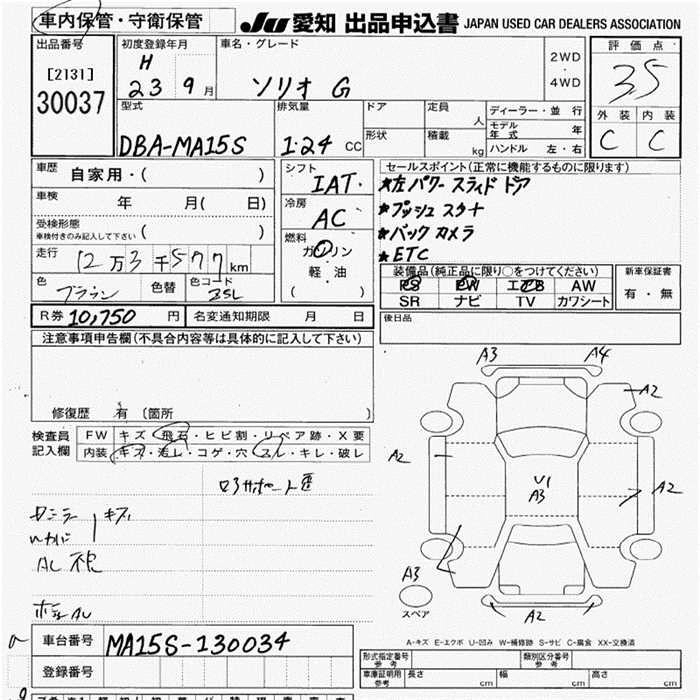 車内保管・守衛保管
JU 愛知 出品申込書 JAPAN USED CAR DEALERS ASSOCIATION
出品番号
[2131]
30037
初度登録年月
H
23 9月
車名・グレード
ソリオ G
2WD
・
4WD
評価点
3.5
外装 内装
C C
型式
DBA-MA15S
排気量
1.24 CC
ドア
形状
定員
人
積載
kg
ディーラー・並行
モデル年式 年
ハンドル 左・右
車歴
自家用・( )
車検
年 月( 日)
受検形態
車検付きのみ記入して下さい ( )
走行
12万3千577km
色
ブラウン
色替
色コード
シフト
IAT・
冷房
AC
燃料
ガソリン
軽・油
( )
セールスポイント(正常に機能するものに限ります)
★左パワースライドドア
★プッシュスタート
★バックカメラ
★ETC
装備品(純正品に限り○をつけてください)
PS PW エアB AW
SR ナビ TV カワシート
新車保証書
有・無
後日品
R券 10,750 円
名変通知期限 月 日
注意事項申告欄(不具合内容等は具体的に記入して下さい)
修復歴 有 (箇所 )
検査員
記入欄
FW キズ・飛石・ヒビ割・リペア跡・X要
内装 キズ・汚レ・コゲ・穴・スレ・キレ・破レ
キズ
A3 A4
A2
A2
U1
A3
A2
A3
スペア
A2
A-キズ E-エクボ U-凹み W-補修跡 S-サビ C-腐食 XX-交換済
車台番号
MA15S-130034
登録番号
型式指定番号
参考
類別区分番号
参考
車庫証明用
参考
長さ cm
幅 cm
高さ cm